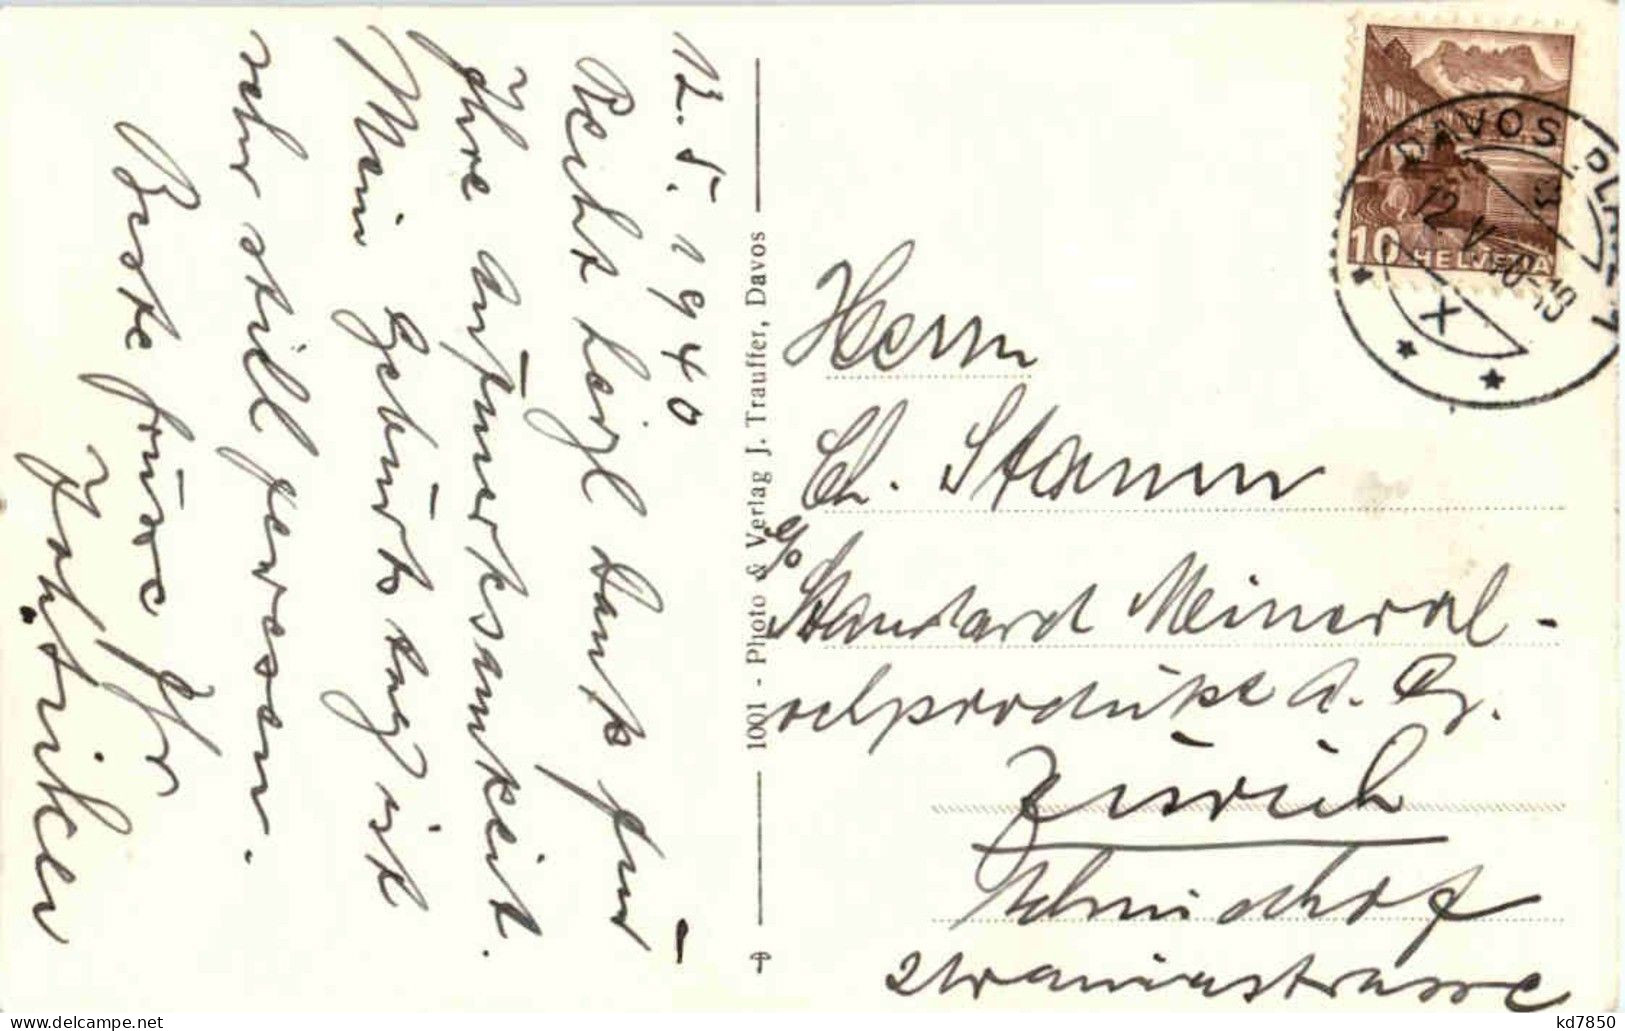 12. 5. 1940
Recht herzl Dank für
Ihre Aufmerksamkeit.
Mein Geburtstag ist
sehr still gewesen.
Beste Grüsse Ihr
1001 - Photo & Verlag J. Trauffer, Davos
DAVOS PLATZ 1
12 V 40-19
X
10 HELVETIA
Herrn
Ch. Stamm
c/o Standard Mineral-
oelprodukte A. G.
Zürich
Schmidhof
kd7850